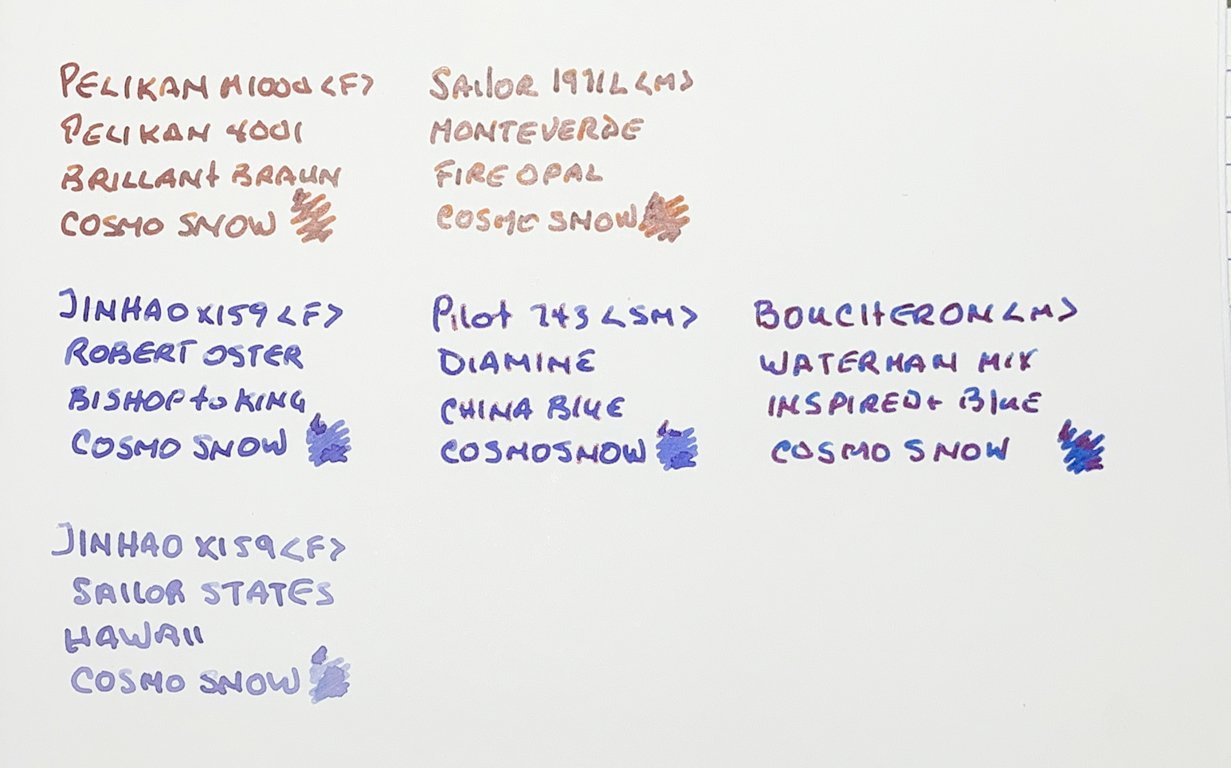 PELIKAN M1000 <F>
PELIKAN 4001
BRILLANt BRAUN
COSMO SNOW
SAilOR 1911L <M>
MONTEVERDE
FIRE OPAL
COSMO SNOW
JINHAO X159 <F>
ROBERT OSTER
BISHOP to KING
COSMO SNOW
Pilot 743 <SM>
DIAMINE
CHINA BlUE
COSMOSNOW
BOUCHERON <M>
WATERMAN MIX
INSPIRED+ BlUE
COSMO SNOW
JINHAO X159 <F>
SAILOR STATES
HAWAII
COSMO SNOW